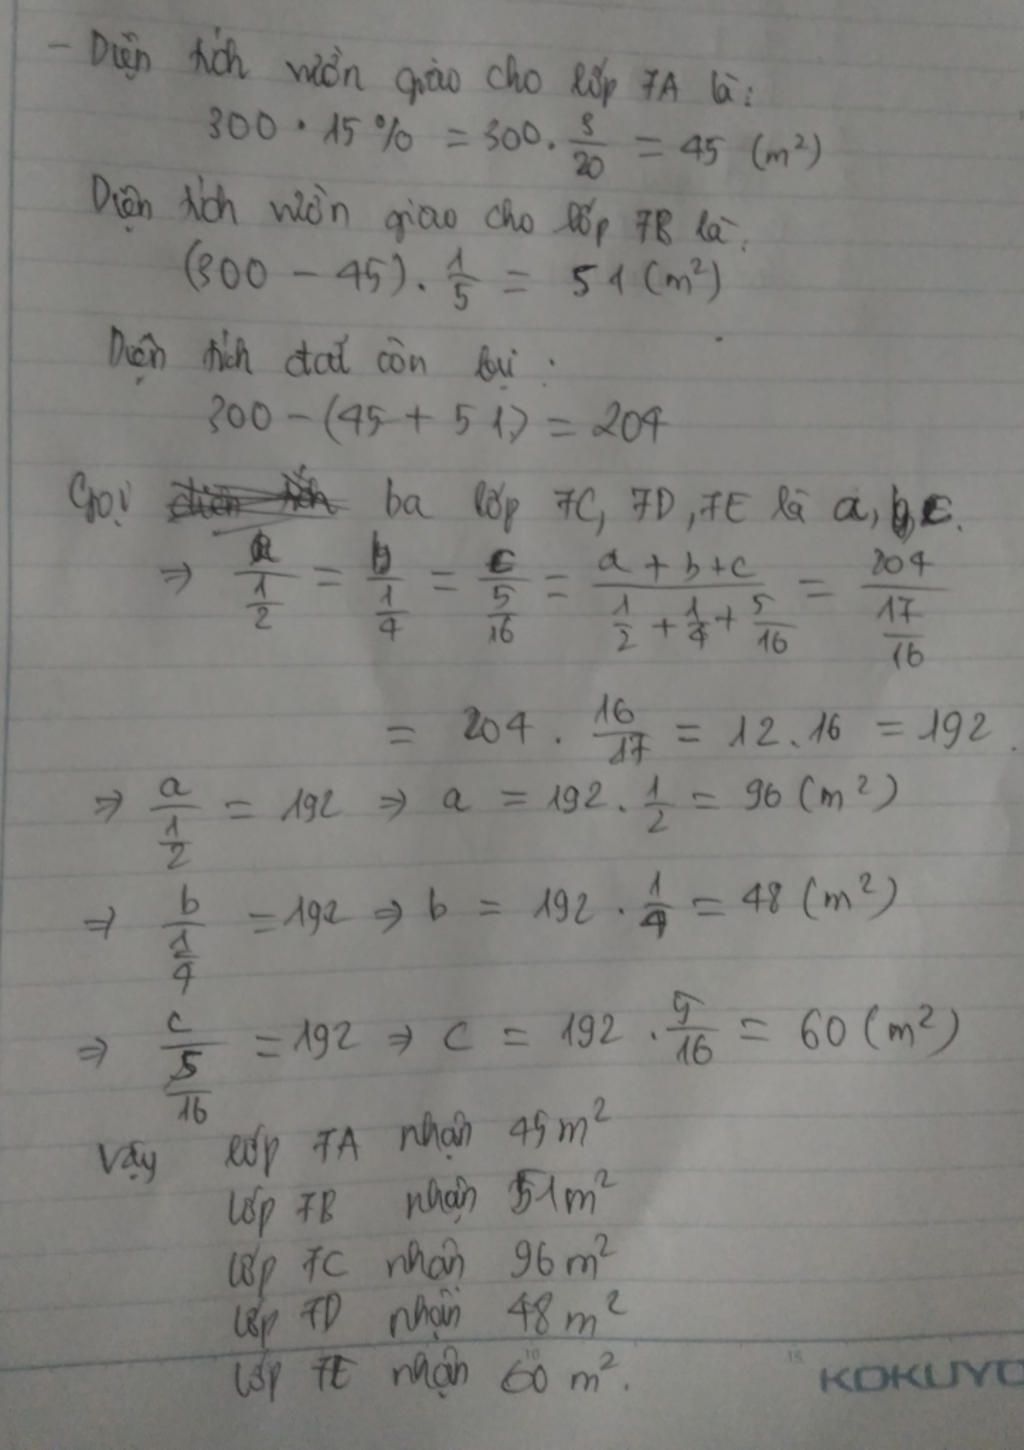 - Diện tích vườn giao cho lớp 7A là:
300 . 15% = 300 . 3/20 = 45 (m²)
Diện tích vườn giao cho lớp 7B là:
(300 - 45) . 1/5 = 51 (m²)
Diện tích đất còn lại:
300 - (45 + 51) = 204
Gọi ba lớp 7C, 7D, 7E là a, b, c.
⇒ a/(1/2) = b/(1/4) = c/(5/16) = (a + b + c)/(1/2 + 1/4 + 5/16) = 204/(17/16)
= 204 . 16/17 = 12 . 16 = 192.
⇒ a/(1/2) = 192 ⇒ a = 192 . 1/2 = 96 (m²)
⇒ b/(1/4) = 192 ⇒ b = 192 . 1/4 = 48 (m²)
⇒ c/(5/16) = 192 ⇒ c = 192 . 5/16 = 60 (m²)
Vậy lớp 7A nhận 45 m²
lớp 7B nhận 51 m²
lớp 7C nhận 96 m²
lớp 7D nhận 48 m²
lớp 7E nhận 60 m².
KOKUYO